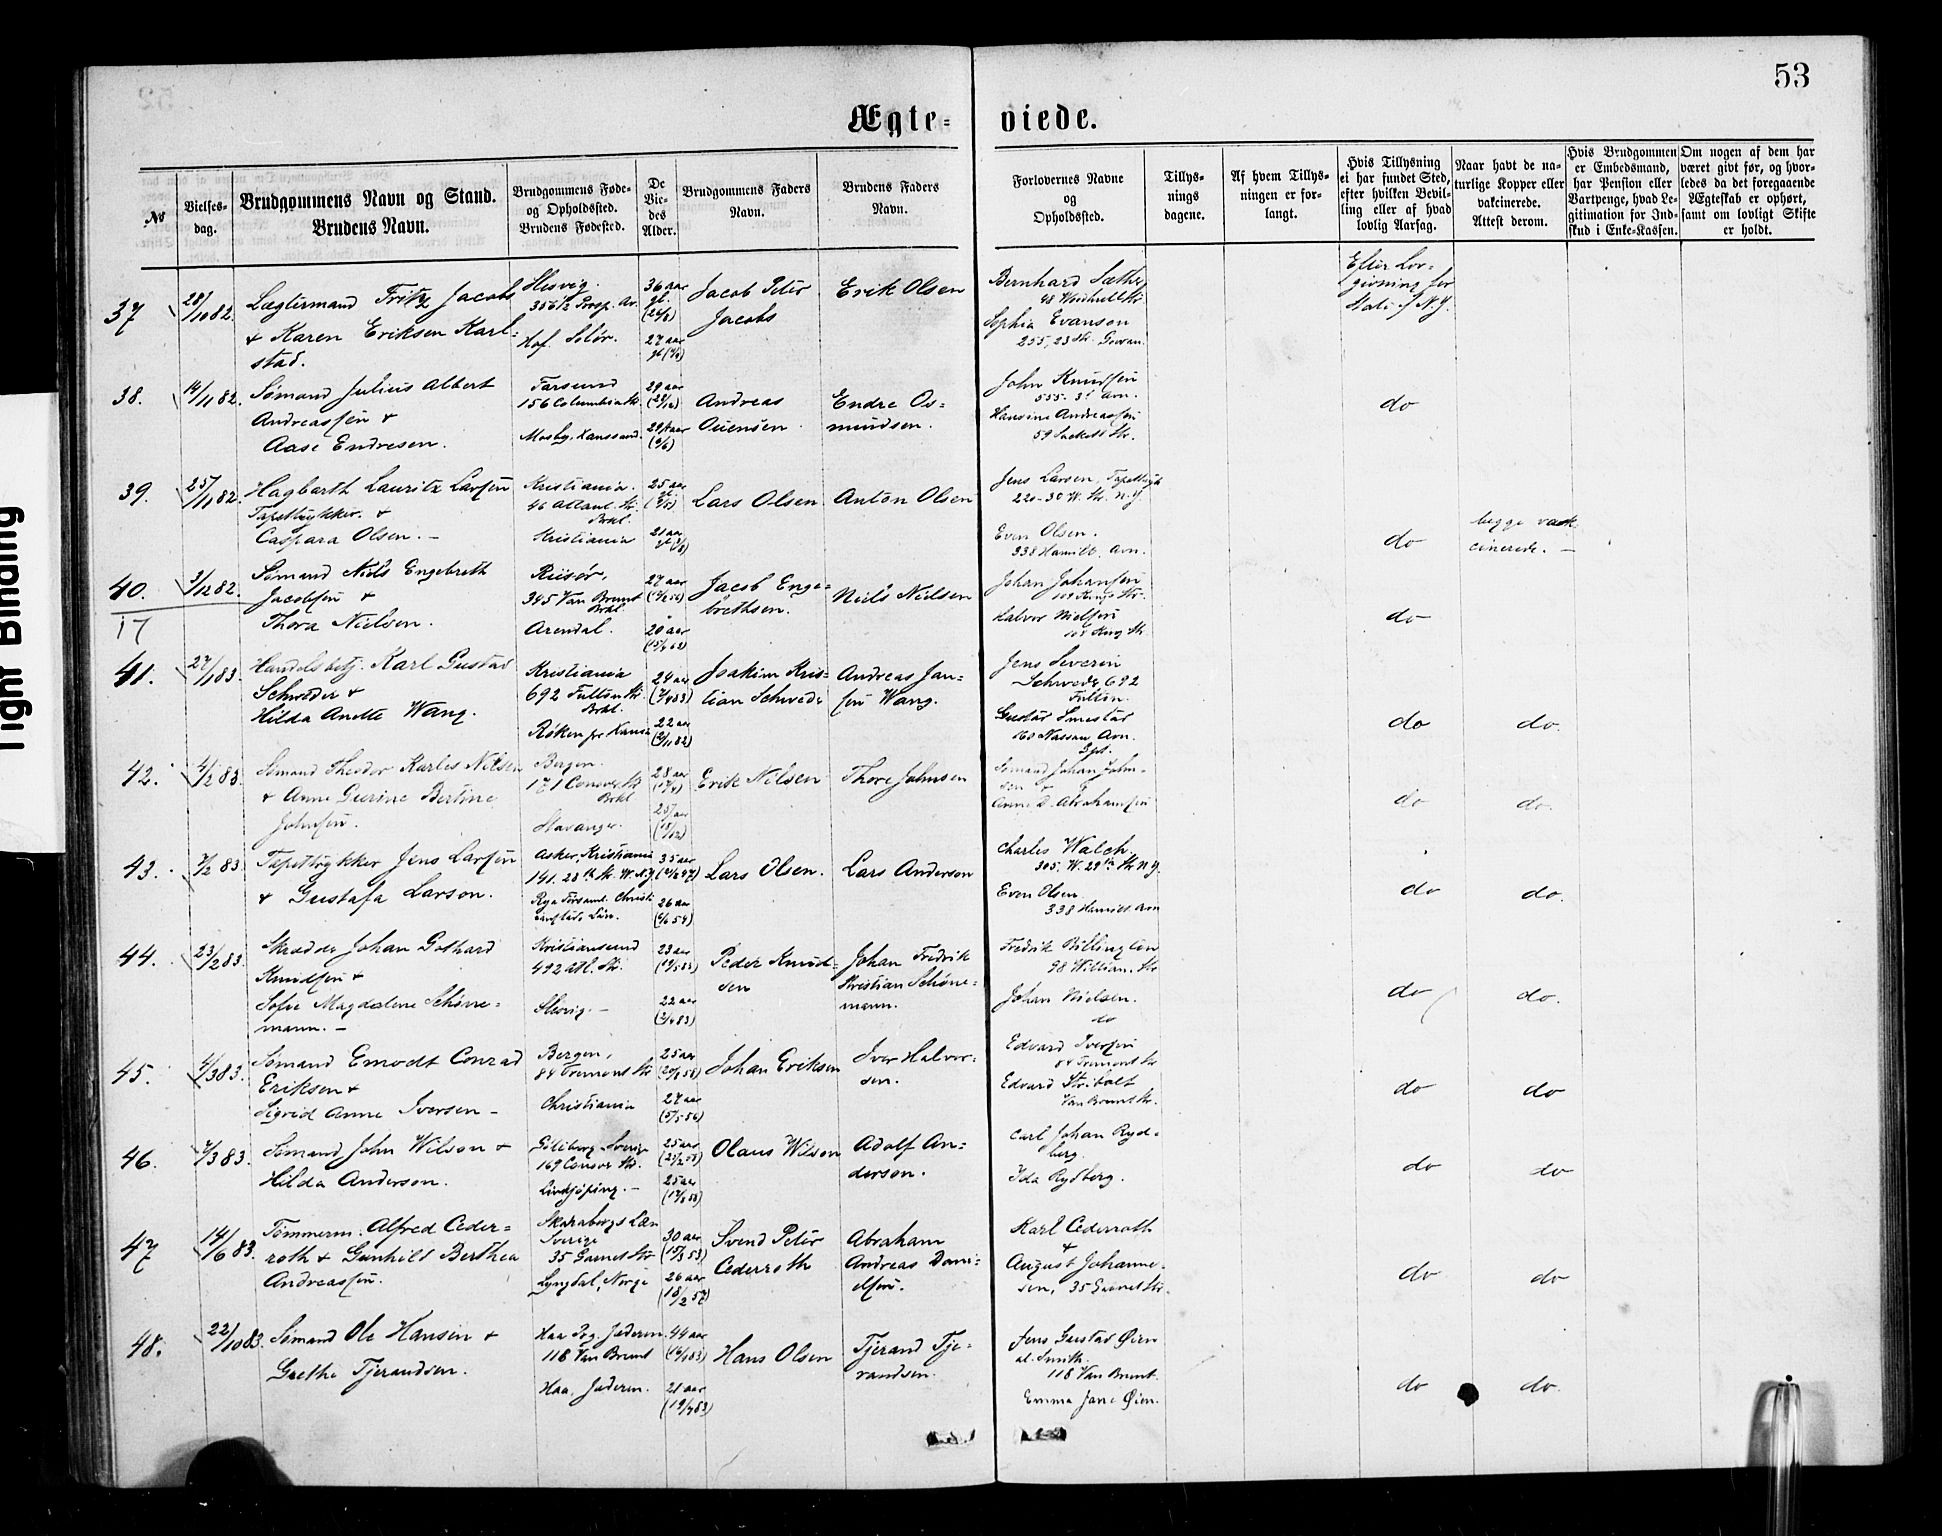 53
Ægte= viede.
No
Vielses-
dag.
Brudgommens Navn og Stand.
Brudens Navn.
Brudgommens Føde-
og Opholdssted.
Brudens Fødested.
De
Vie-
des
Alder.
Brudgommens Faders
Navn.
Brudens Faders
Navn.
Forlovernes Navne
og
Opholdssted.
Tillys-
nings
dagene.
Af hvem Tillys-
ningen er for-
langt.
Hvis Tillysning
ei har fundet Sted,
efter hvilken Bevil-
ling eller af hvad
lovlig Aarsag.
Naar havt de na-
turlige Kopper eller
vakcinerede.
Attest derom.
Hvis Brudgommen
er Embedsmand,
har Pension eller
Vartpenge, hvad Le-
gitimation for Ind-
skud i Enke-Kassen.
Om nogen af dem har
været givt før, og hvor-
ledes da det foregaaende
Ægteskab er ophørt,
samt om lovligt Skifte
er holdt.
37 28/10 82. Lægtermand Fritz Jacobs
& Karen Eriksen Karl-
stad.
Slesvig.
356 1/2 Prosp. Av.
Hof. Solør.
36 aar
27 aar
Jacob Peter
Jacobs
Erik Olsen
Bernhard Sæther
Sophia Evanson
255, 23 Str. Gowan.
Efter Lov-
givning for
State of N.Y.
38. 14/11 82. Sømand Julius Albert
Andreassen &
Aase Endresen.
Farsund
156 Columbia Str.
Mosby,
29 aar
Andreas
Endre Os-
mundsen.
John Knudsen
555. 3d Avn.
Hansine Andreassen
59 Sackett Str.
do
39. 25/11 82. Hagbarth Lauritz Larsen
Tapettrykker. &
Caspara Olsen. —
Kristiania.
46 Atlant. Str.
Brkl.
Kristiania
25 aar
21 aar
Lars Olsen
Anton Olsen
Jens Larsen,
220-30 W. Str. N.Y.
Even Olsen.
338 Hamilt. Avn.
do
begge vack
cinerede. —
40. 3/12 82 Sømand Niels Engebreth
Jacobsen &
Thora Nielsen.
Riisør,
345 Van Brunt
Brkl.
Arendal.
27 aar
20 aar
Jacob Enge-
brethsen.
Niels Nielsen
Johan Johansen
Halvor Nielsen
do
17
41. 27/1 83. Handelsbetj. Karl Gustav
Schwæder &
Hilda Anette Wang.
Kristiania
692 Fulton Str.
Brkl.
Røken
24 aar
22 aar
Joakim Kris-
tian Schwede
Andreas Jan-
sen Wang.
Jens Severin
Schwede 692
Fulton.
Gustav Smestad
160 Nassau Avn.
do
do.
42. 4/2 83. Sømand Theodor Karles Nilsen
& Anne Geerine Bertine
Johnsen.
Bergen.
171 Conover Str
Brkl
Stavanger.
28 aar
25 aar
Erik Nilsen
Thore Johnsen
Sømand Johan John-
sen &
Anne D. Abrahamsen
do
do.
43. 7/2 83. Tapettrykker Jens Larsen
& Gustafa Larson.
Asker, Kristiania
141. 28th Str. W. N.Y.
35 aar
26 aar
Lars Olsen.
Lars Anderson
Charles Walch.
305. W. 29th Str N.Y.
Even Olsen.
338 Hamilt Avn
do
do.
44. 23/2 83. Skrædder Johan Gothard
Knudsen &
Sofie Magdalene Schøne-
mann. —
Kristiansund
492 Atl. Str.
Slesvig. —
23 aar
22 aar
Peder Knud-
sen
Johan Fredrik
Kristian Schöne-
mann.
Fredrik
98 William. Str
Johan Nielsen.
do
do
do.
45. 4/3 83. Sømand Emodt Conrad
Eriksen &
Sigrid Anne Iversen —
Bergen,
84 Tremont Str
Christiania
25 aar
27 aar
Johan Eriksen
Iver Halvor-
sen.
Edvard Iversen
84 Tremont Str
Edvard Stribolt
Van Brunt Str.
do
do
46. 7/3 83. Sømand John Wilson &
Hilda Anderson.
Göteborg Sverige
169 Conover Str.
Lindköping. —
25 aar
25 aar
Olaus Wilson
Adolf An-
derson.
Carl Johan Ryd-
berg.
Ida Rydberg.
do
do
47 14/6 83. Tømmerm. Alfred Ceder-
roth & Gunhild Berthea
Andreassen.
Skaraborgs Læn
Sverige
35 Garnet Str
Lyngdal, Norge
30 aar
(15/3 53)
26 aar
(18/2 57)
Svend Peter
Cederroth
Abraham
Andreas Dani-
elsen.
Karl Cederroth
&
August Johanne-
sen, 35 Garnet Str.
do
do
48. 22/10 83. Sømand Ole Hansen &
Grethe Tjerandsen.
Haa Prg. Jæderen
118 Van Brunt
Haa. Jæderen.
44 aar
21 aar
Hans Olsen
Tjerand Tje-
randsen.
Jens Gustav Øien
al. Smith.
118 Van Brunt.
Emma Jane Øien.
do
do.
Tight Binding